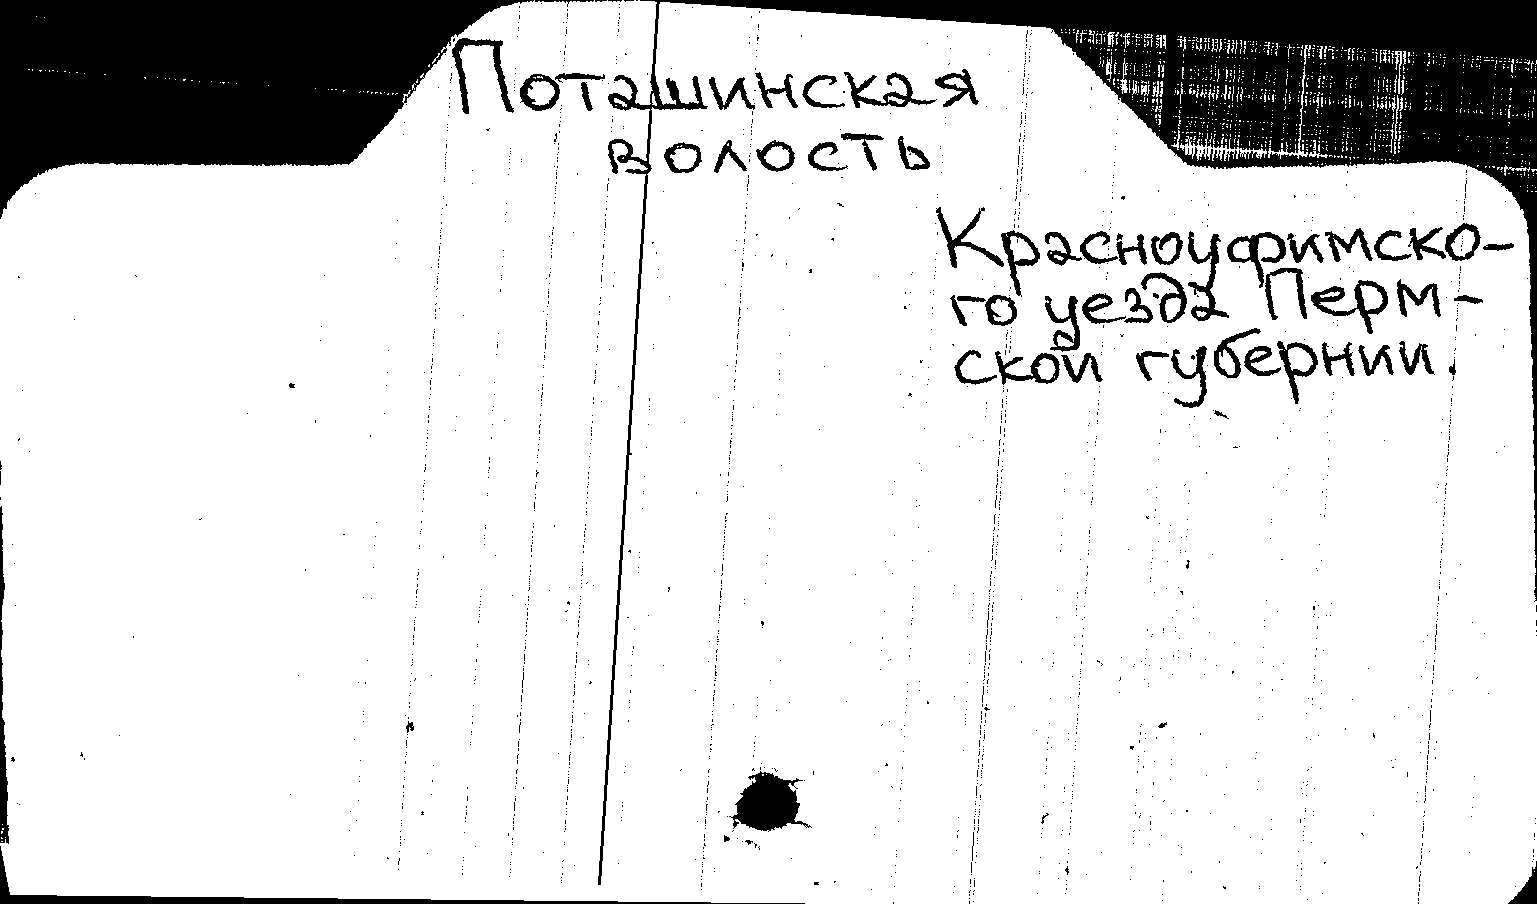 Поташинская
волость
Красноуфимско-
го уезда Перм-
ской губернии.